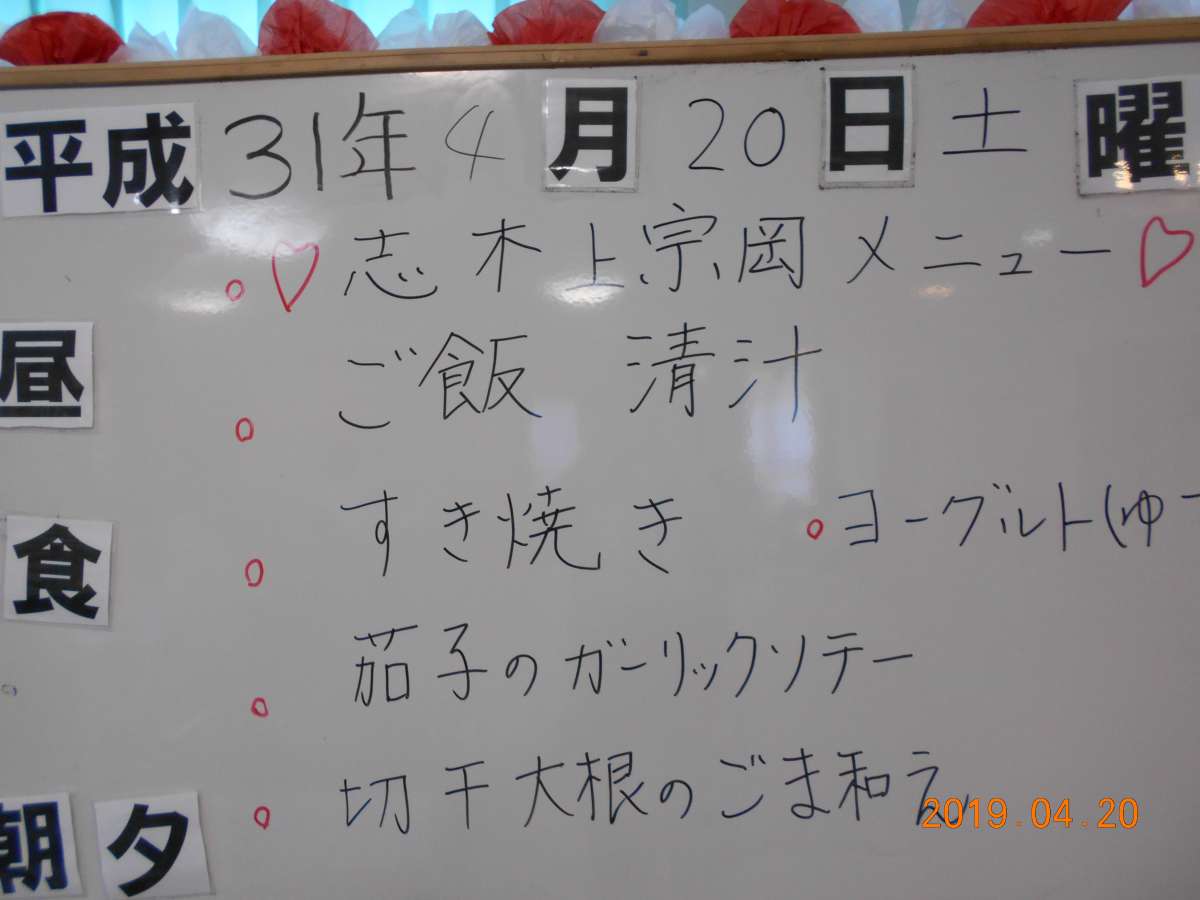 平成31年4月20日土曜
♡志木上宗岡メニュー♡
昼 ご飯 清汁
すき焼き ヨーグルト(ゆ
食
茄子のガーリックソテー
切干大根のごま和え
朝夕
2019.04.20